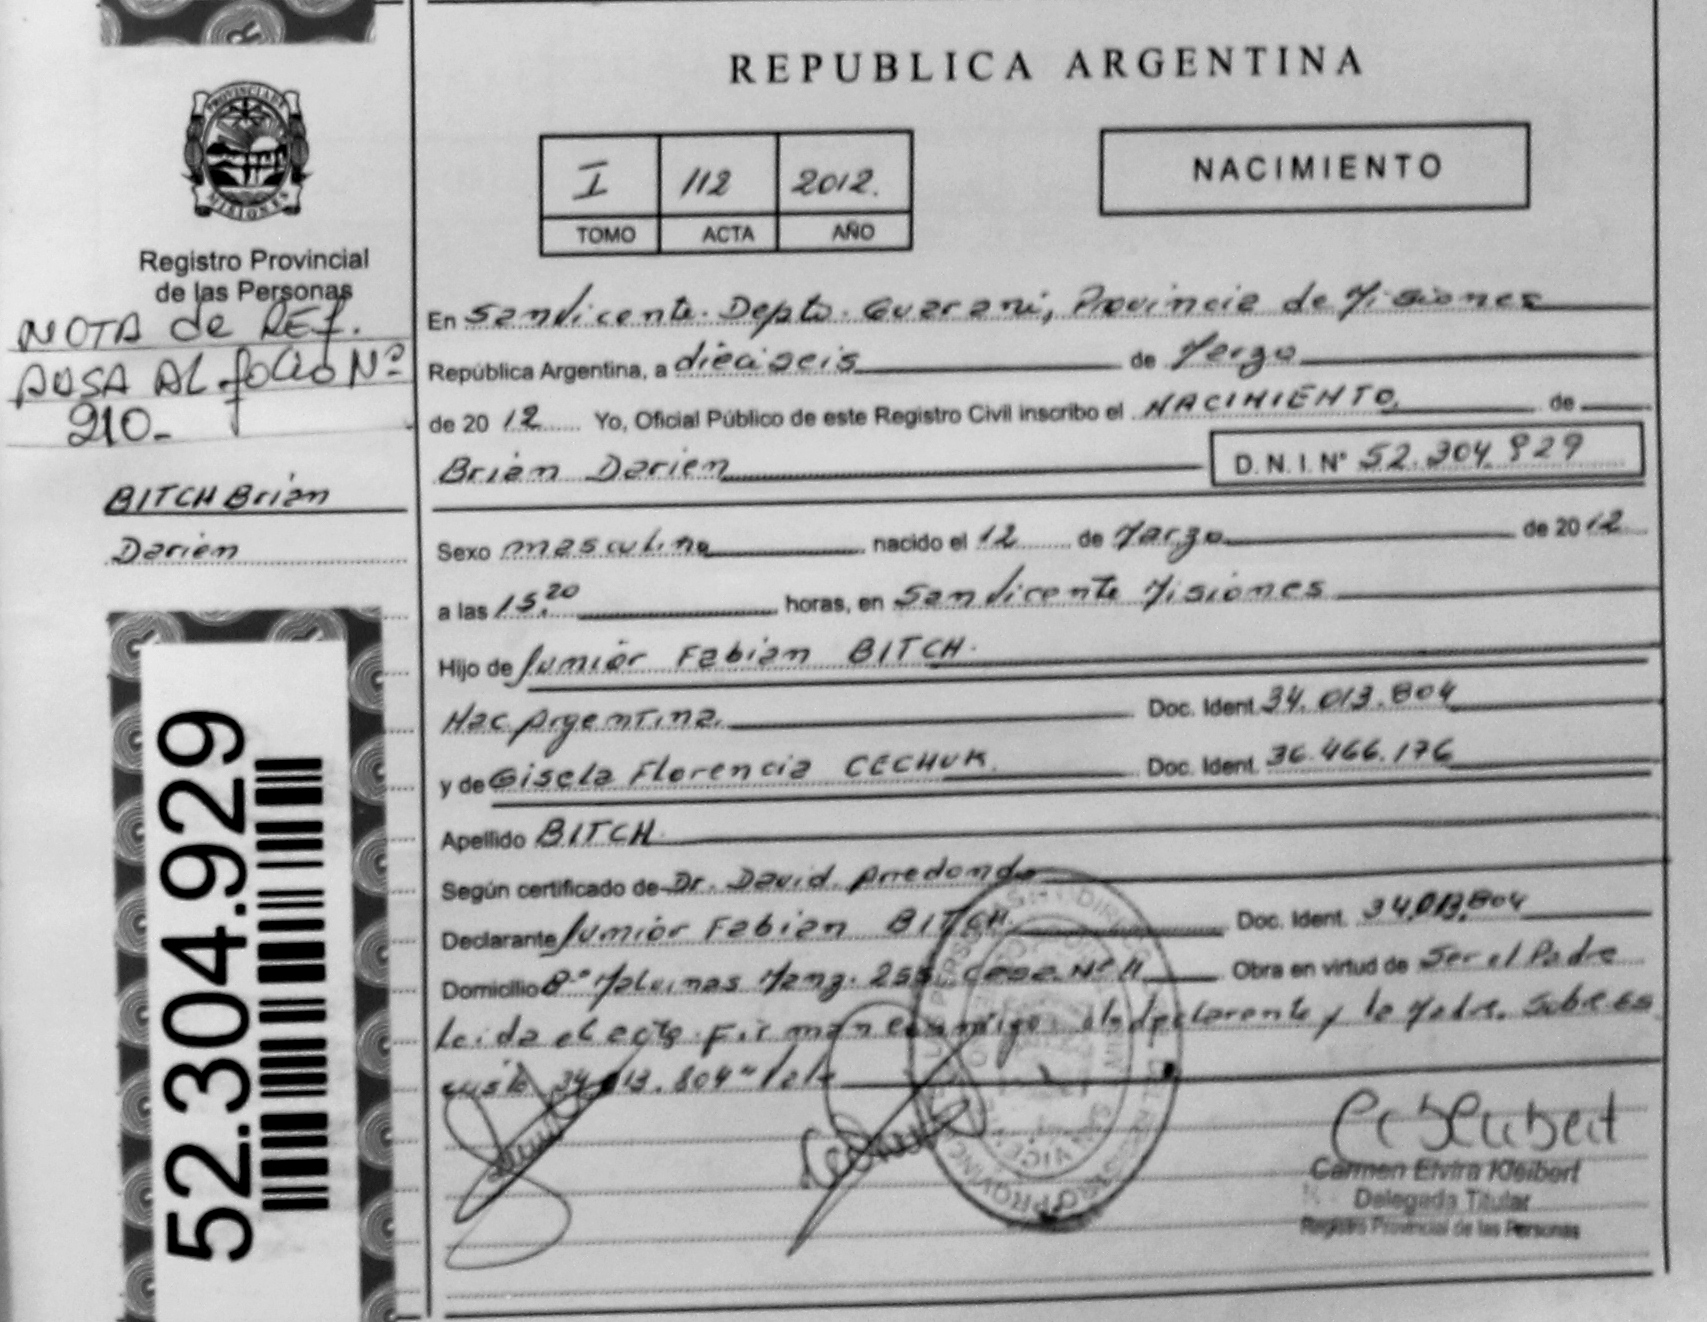 REPUBLICA ARGENTINA
PROVINCIA DE MISIONES
Registro Provincial
de las Personas
NOTA de REF.
PASA AL folio Nº
910-
BITCH Brian
Darien
52.304.929
I 112 2012.
TOMO ACTA AÑO
NACIMIENTO
En San Vicente. Depto. Guarani, Provincia de Misiones
República Argentina, a dieciseis de Marzo
de 2012 Yo, Oficial Público de este Registro Civil inscribo el NACIMIENTO de
Brian Darien D.N.I. Nº 52.304.929
Sexo masculino nacido el 12 de Marzo de 2012
a las 15.20 horas, en San Vicente Misiones
Hijo de Junior Fabian BITCH.
Nac Argentina. Doc. Ident. 34.013.804
y de Gisela Florencia CECHUK. Doc. Ident. 36.466.176
Apellido BITCH.
Según certificado de Dr. David Arredondo
Declarante Junior Fabian BITCH. Doc. Ident. 34.013.804
Domicilio Bº Malvinas Manz. 255 Casa Nº 11 Obra en virtud de Ser el Padre
Leida el acta Firman conmigo el declarante y la Madre. Sobre es
34.013.804" Vale
Carmen Elvira Kleibert
Delegada Titular
Registro Provincial de las Personas